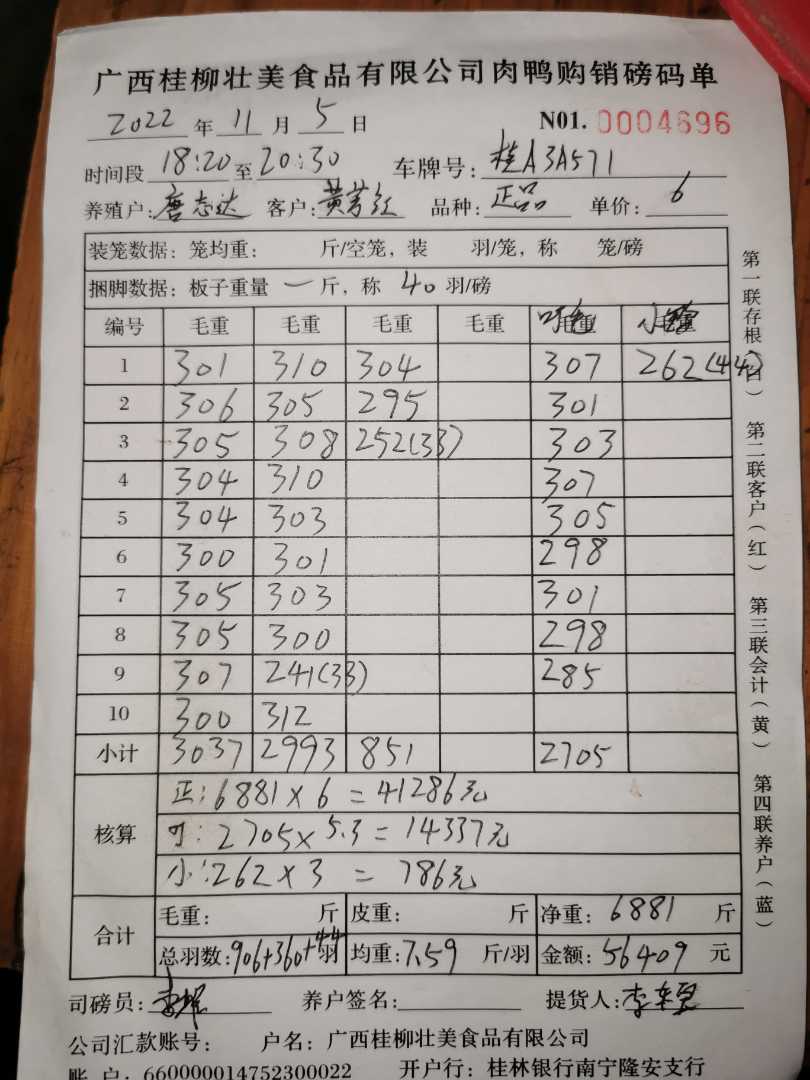 广西桂柳壮美食品有限公司肉鸭购销磅码单
2022 年 11 月 5 日 N01. 0004696
时间段 18:20 至 20:30 车牌号: 桂A3A571
养殖户: 唐志达 客户: 黄芳红 品种: 正品 单价: 6
装笼数据: 笼均重: 斤/空笼, 装 羽/笼, 称 笼/磅
捆脚数据: 板子重量 一 斤, 称 40 羽/磅
编号 毛重 毛重 毛重 毛重
1 301 310 304 307 262(44)
2 306 305 295 301
3 305 308 252(33) 303
4 304 310 307
5 304 303 305
6 300 301 298
7 305 303 301
8 305 300 298
9 307 241(33) 285
10 300 312
小计 3037 2993 851 2705
核算
正: 6881×6=41286元
叮: 2705×5.3=14337元
小: 262×3=786元
合计
毛重: 斤 皮重: 斤 净重: 6881 斤
总羽数: 906+360+44 羽 均重: 7.59 斤/羽 金额: 56409 元
司磅员: 养户签名: 提货人: 李
公司汇款账号: 户名: 广西桂柳壮美食品有限公司
账 户: 660000014752300022 开户行: 桂林银行南宁隆安支行
第一联存根(白) 第二联客户(红) 第三联会计(黄) 第四联养户(蓝)